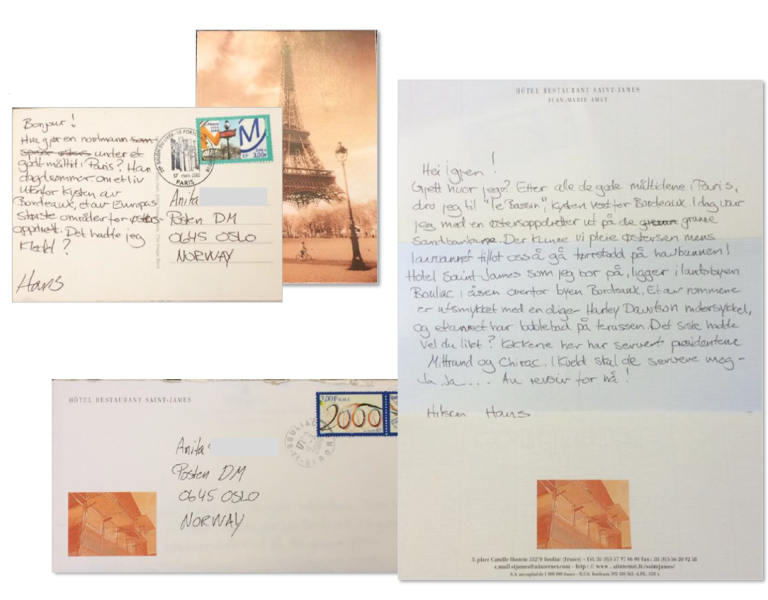 Bonjour!
Hva gjør en nordmann som
under et
godt måltid i Paris? Han
dagdrømmer om et liv
utenfor kysten av
Bordeaux, et av Europas
største områder for østers
oppdrett. Det hadde jeg
Hans
PARIS
Anita
Posten DM
0645 OSLO
NORWAY
HÔTEL RESTAURANT SAINT-JAMES
3,00F
2000
Anita
Posten DM
0645 OSLO
NORWAY
HÔTEL RESTAURANT SAINT-JAMES
JEAN-MARIE AMAT
Hei igjen!
Gjett hvor jeg? Etter alle de gode måltidene i Paris,
dro jeg til "Le Bassin", kysten vest for Bordeaux. I dag var
jeg med en østersoppdretter ut på de grunne
sandbankene. Der kunne vi pleie østersen mens
lavvannet tillot oss å gå tørrskodd på havbunnen!
Hotel Saint James som jeg bor på, ligger i landsbyen
Bouliac i åsen ovenfor byen Bordeaux. Et av rommene
er utsmykket med en diger Harley Davidson motorsykkel,
og et annet har boblebad på terassen. Det siste hadde
vel du likt? Kokkene her har servert presidentene
Mittrand og Chirac. I kveld skal de servere meg -
Ja Ja.... Au revoir for nå!
Hilsen Hans
3, place Camille Hostein 33270 Bouliac (France) - Tél. 05 57 97 06 00 Fax : 05 56 20 92 58